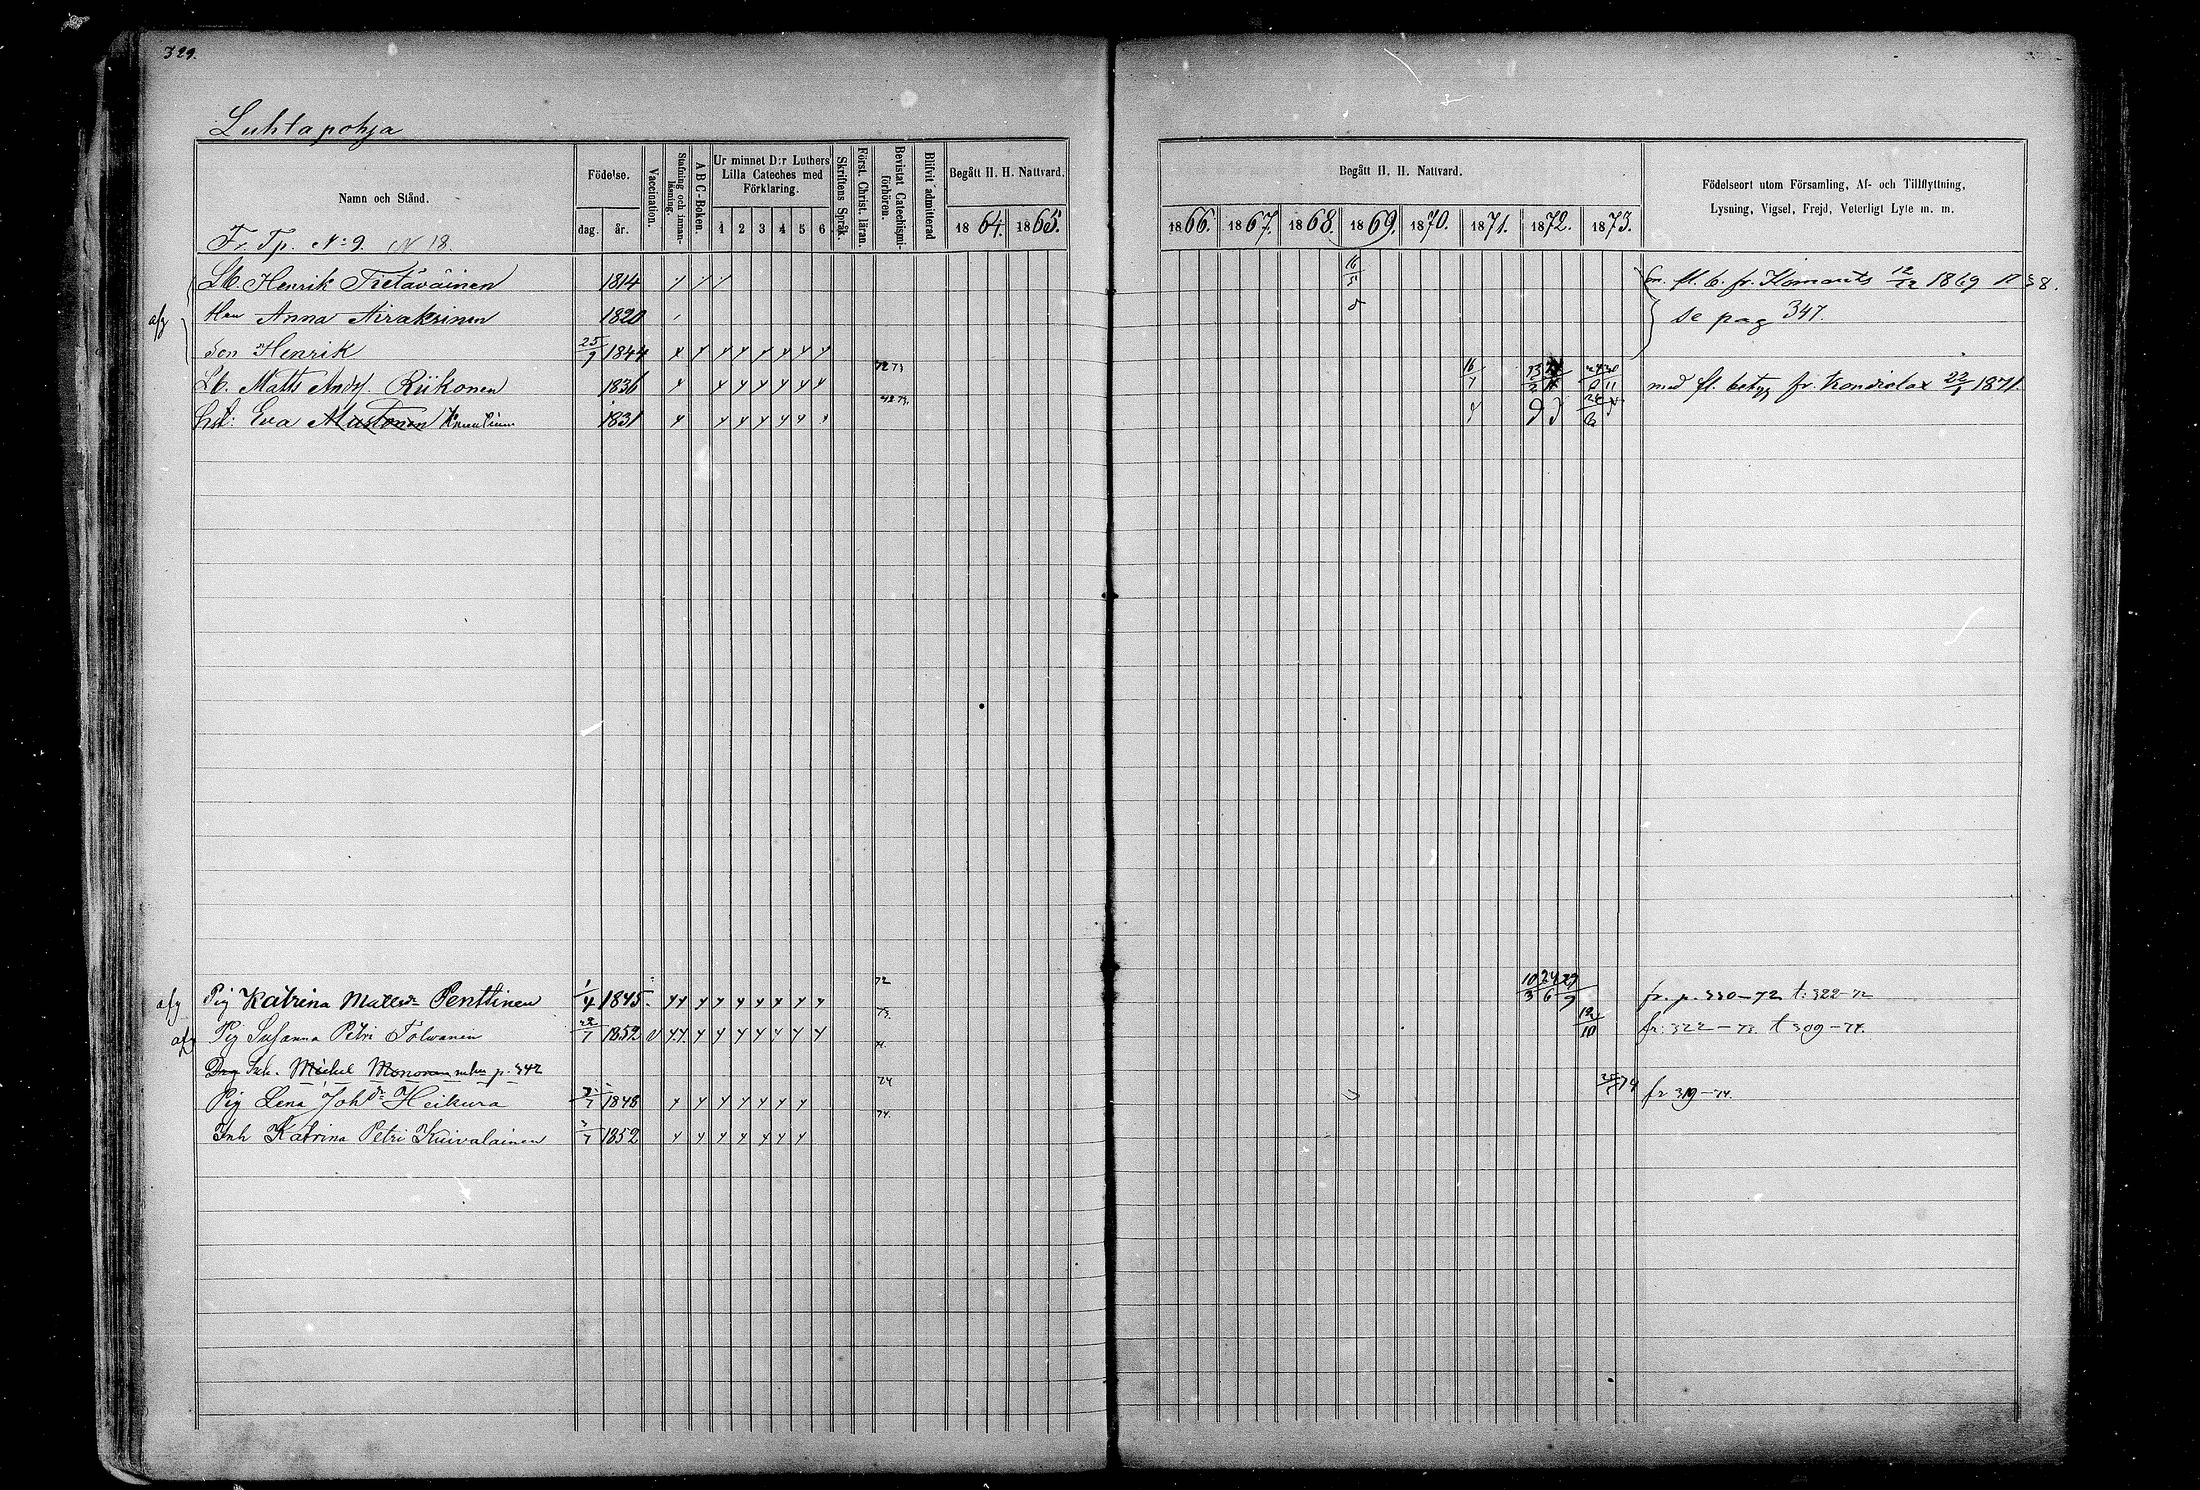 329.
Luhtapohja
Namn och Stånd. Födelse. Vaccination. Stafning och innanläsning. A B C-Boken. Ur minnet D:r Luthers Lilla Cateches med Förklaring. Skriftens Språk. Först. Christ. läran. Bevistat Catechismi-förhören. Blifvit admitterad Begått H. H. Nattvard.
dag. år. 1 2 3 4 5 6 1864. 1865.
Begått H. H. Nattvard. Födelseort utom Församling, Af- och Tillflyttning, Lysning, Vigsel, Frejd, Veterligt Lyte m. m.
1866. 1867. 1868. 1869. 1870. 1871. 1872. 1873.
Fr. Tp. N:o 9. N 18.
Lb. Henrik Tietäväinen 1814 16/5 m. fl. b. fr. Ilomants 12/12 1869 n 38.
afg Hu Anna Airaksinen 1820 se pag 347.
Son Henrik 25/9 1844
Lb. Matts Andsf. Riikonen 1836 72 73 16/7 med fl. betyg fr. Kondielax 22/1 1871
hst: Eva Mustonen 1831 72 73.
afg Pig Katrina Matsdr Penttinen 1/4 1845. 72 10/3 24/6 29/9 fr. p. 330-72 t: 322-72
afg Pig Susanna Petri Tolwanen 22/7 1852 v 73. 12/10 fr: 322-73. t 309-74.
Drg Michel Mononen p. 342
Pig Lena Johdr Heikura 1848 74 74 fr 319-74.
Inh Katrina Petri Kuivalainen 3/7 1852 74.